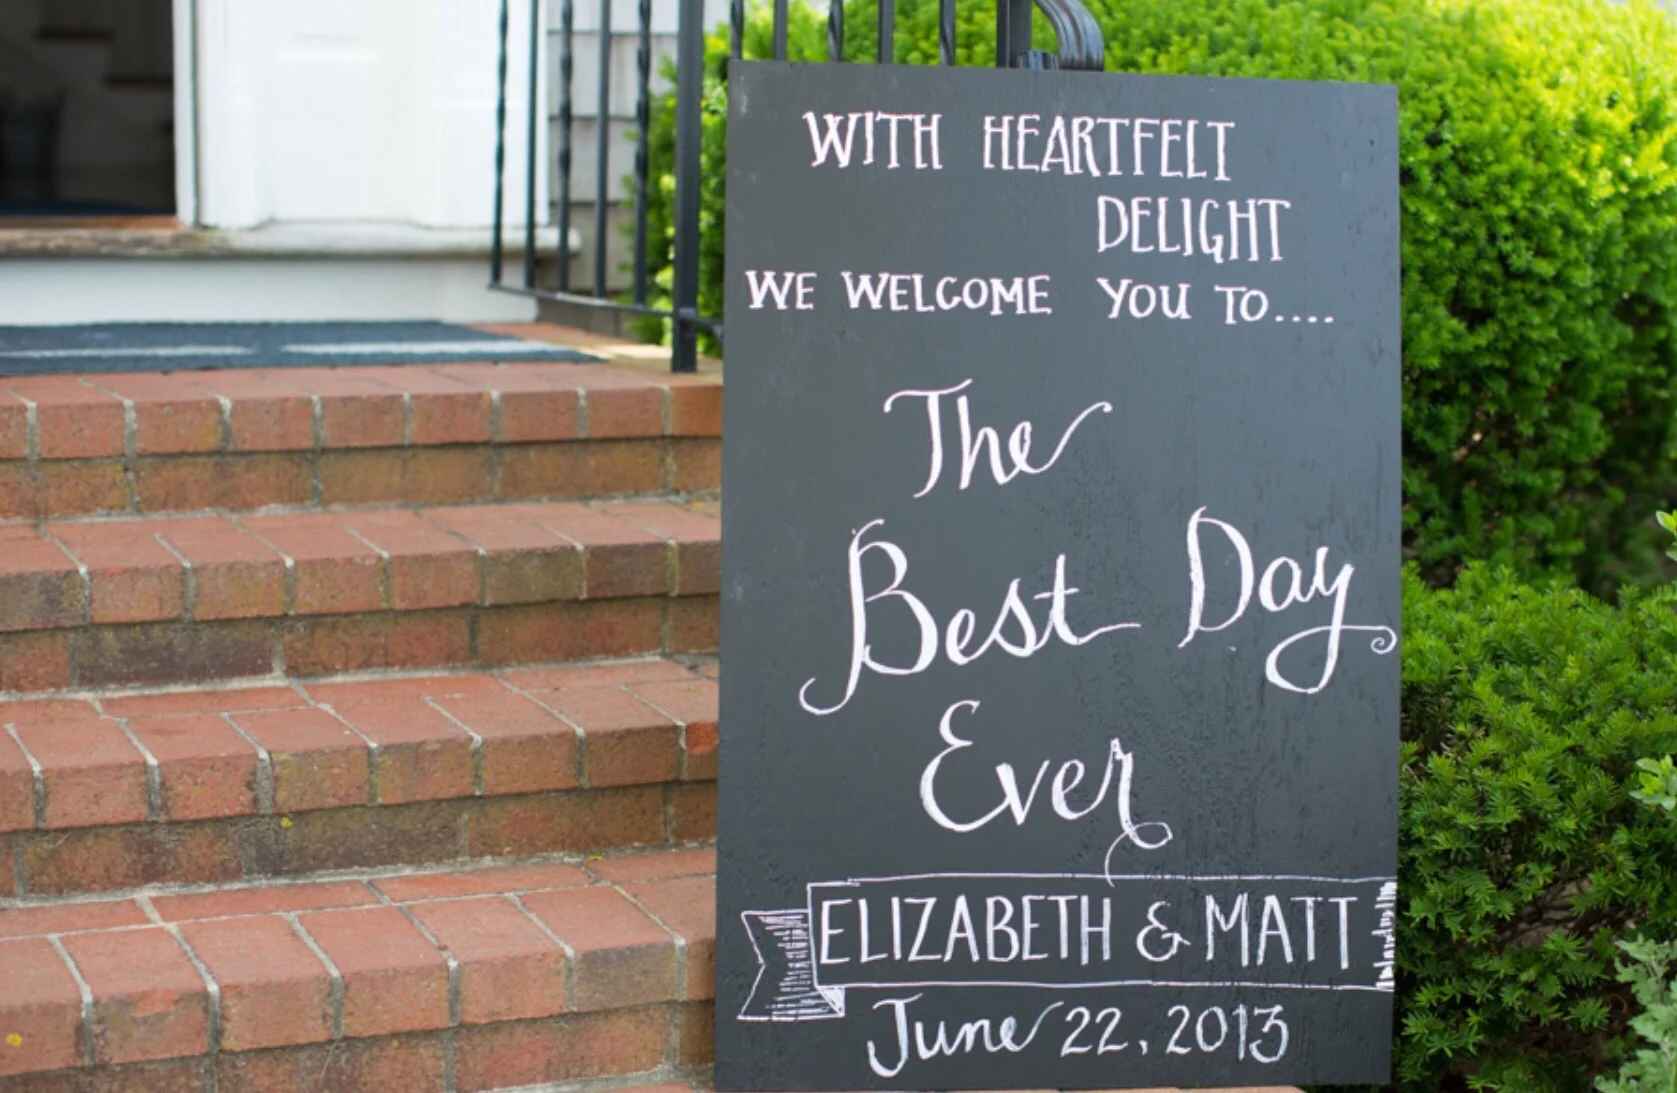 WITH HEARTFELT
DELIGHT
WE WELCOME YOU TO....
The
Best Day
Ever
ELIZABETH & MATT
June 22, 2013